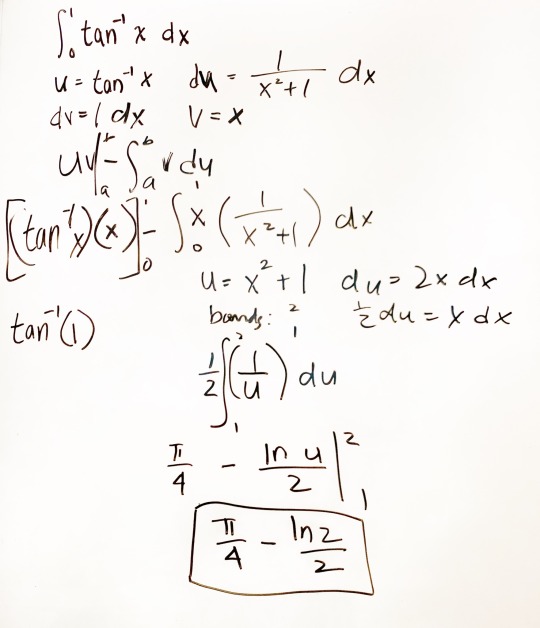 ∫₀¹ tan⁻¹ x dx
u = tan⁻¹ x du = 1/(x²+1) dx
dv = 1 dx v = x
uv|ₐᵇ - ∫ₐᵇ v du
[(tan⁻¹ x)(x)]₀¹ - ∫₀¹ x (1/(x²+1)) dx
u = x² + 1 du = 2x dx
tan⁻¹(1) bounds: 2 1 ½ du = x dx
1/2 ∫₁² (1/u) du
π/4 - ln u/2 |₁²
π/4 - ln2/2